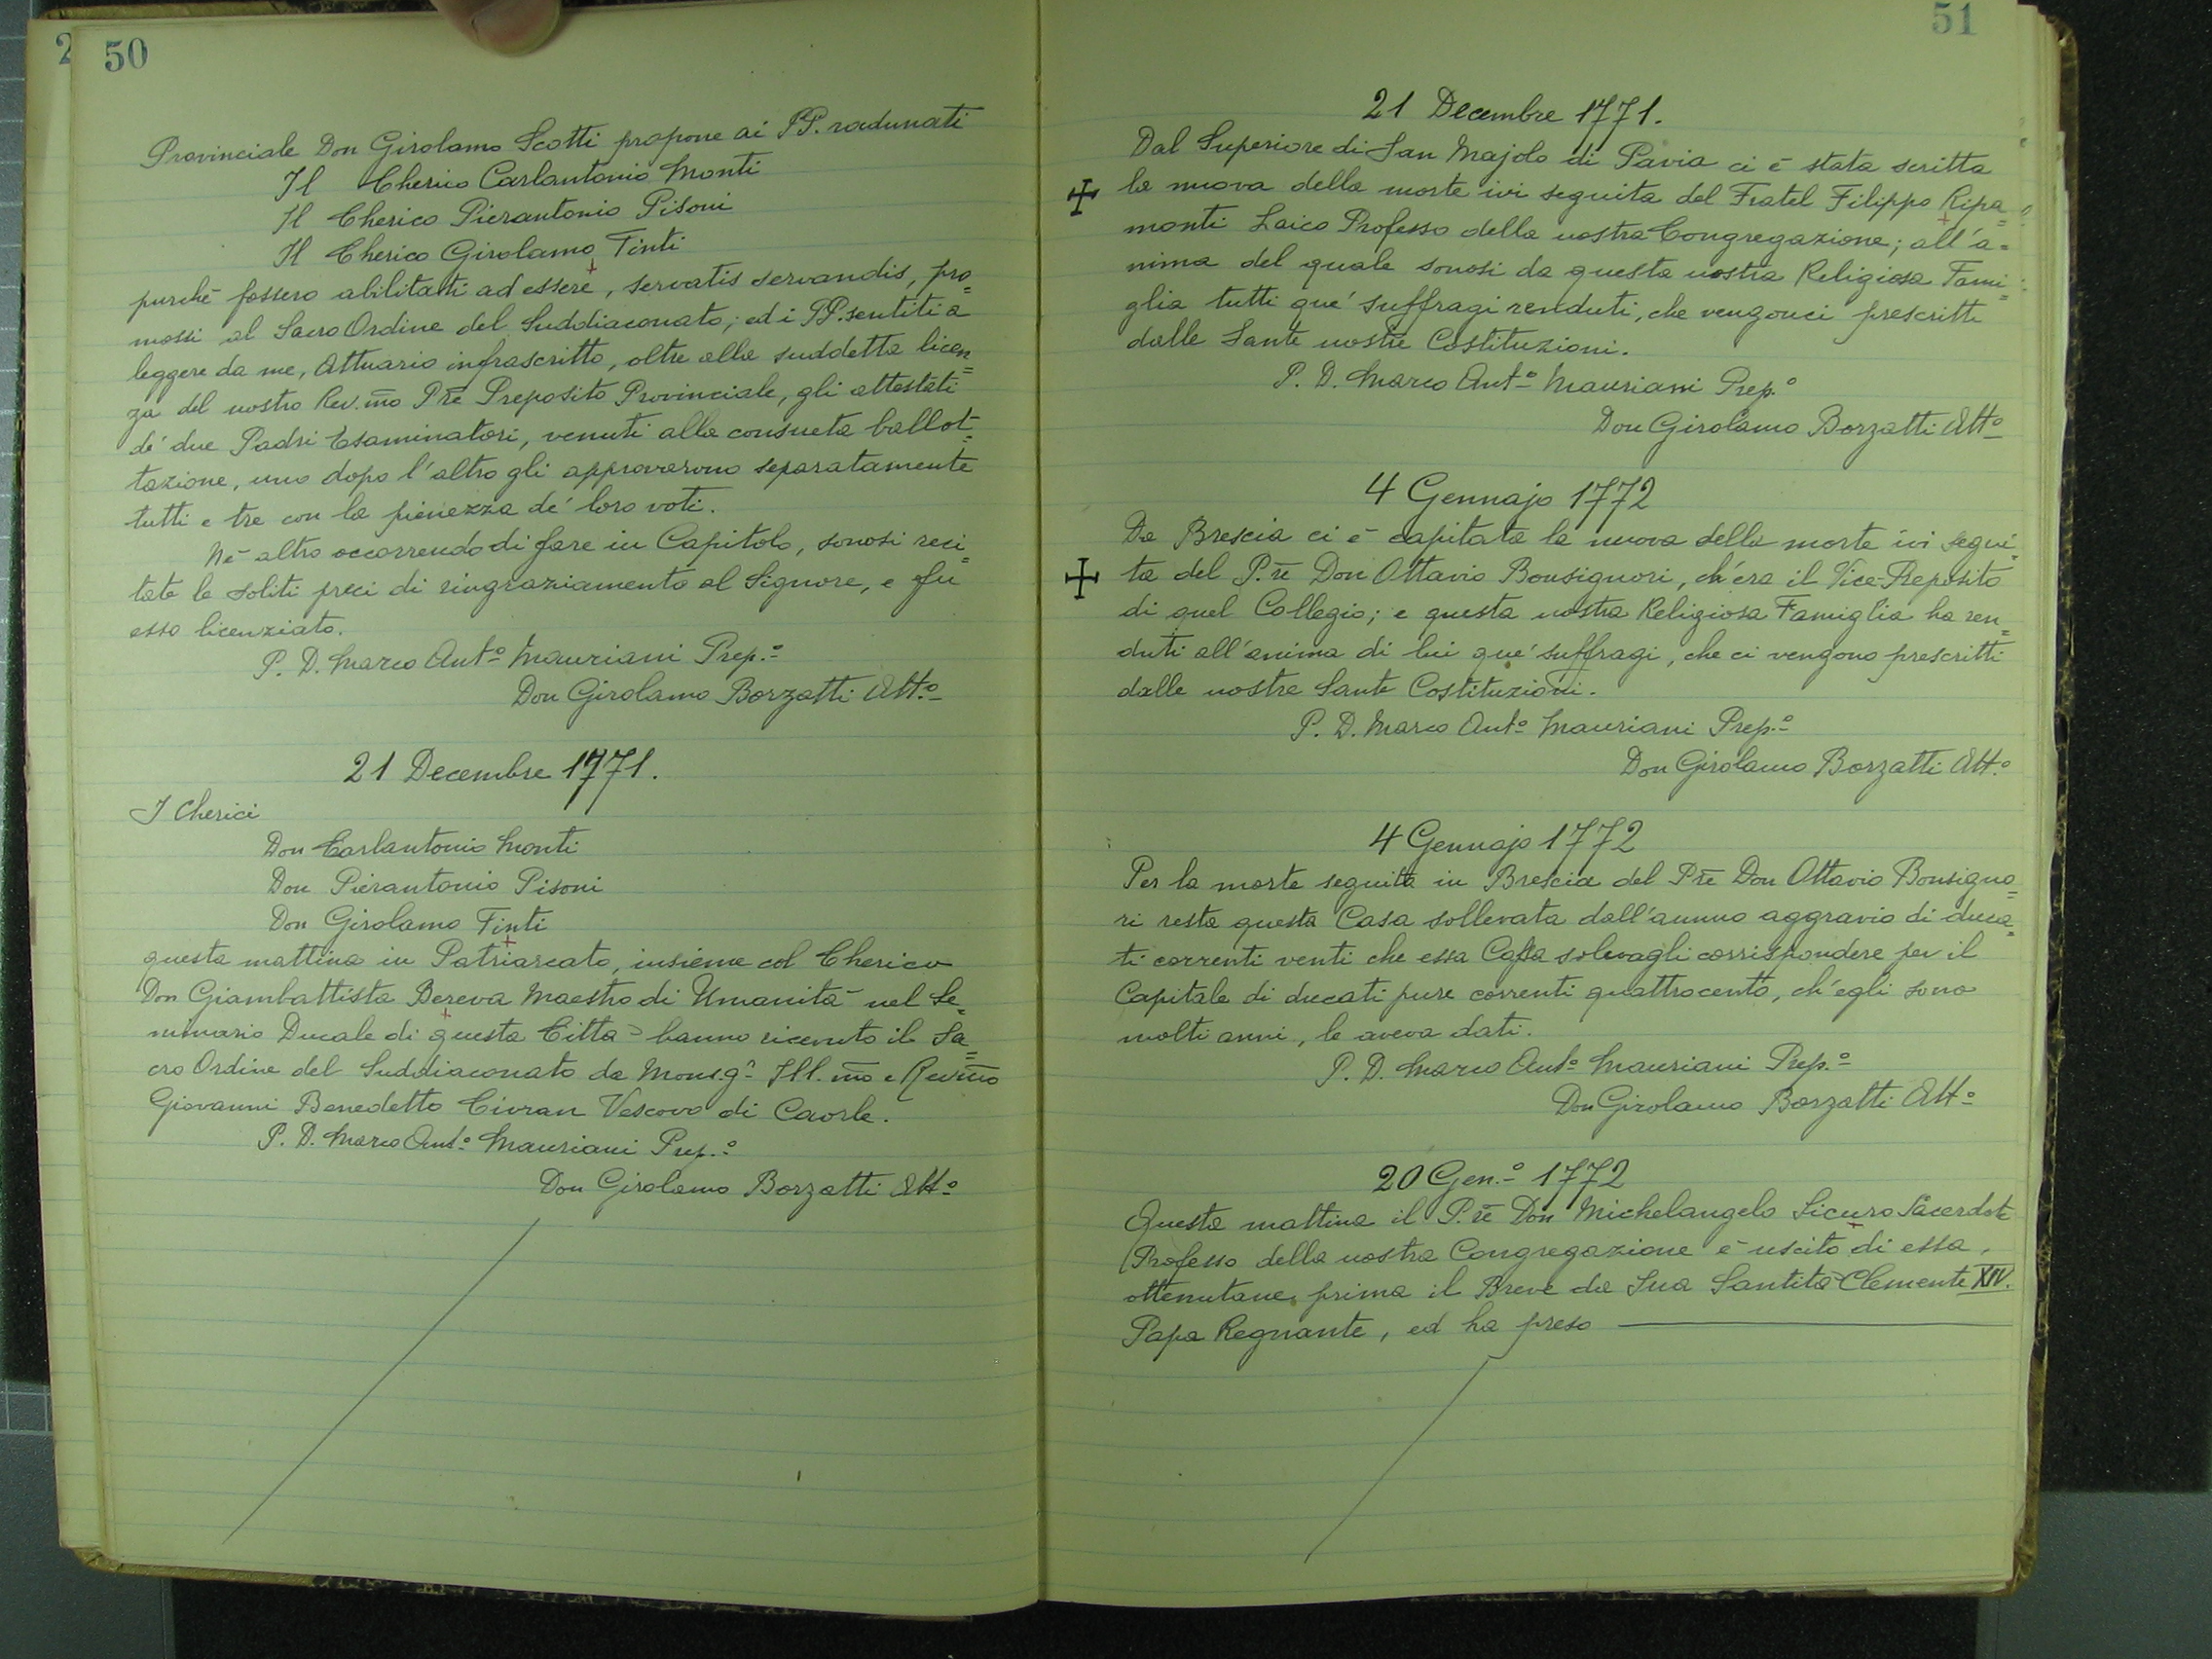 50
Provinciale Don Girolamo Scotti propone ai PP. radunati
Il Cherico Carlantonio Monti
Il Cherico Pierantonio Pisoni
Il Cherico Girolamo Tinti
purchè fossero abilitati ad essere, servatis servandis, pro=
mossi al Sacro Ordine del Suddiaconato; ed i PP. sentiti a
leggere da me, Attuario infrascritto, oltre alla suddetta licen=
za del nostro Rev.mo Pre Preposito Provinciale, gli attestati
de' due Padri Esaminatori, venuti alla consueta ballot=
tazione, uno dopo l'altro gli approvarono separatamente
tutti e tre con la pienezza de' loro voti.
Nè altro occorrendo di fare in Capitolo, sonosi reci=
tate le soliti preci di ringraziamento al Signore, e fu
esso licenziato.
P. D. Marco Ant.o Mauriani Prep.o
Don Girolamo Borzatti Att.o
21 Decembre 1771.
I Cherici
Don Carlantonio Monti
Don Pierantonio Pisoni
Don Girolamo Tinti
questa mattina in Patriarcato, insieme col Cherico
Don Giambattista Bereva Maestro di Umanità nel Se=
minario Ducale di questa Città hanno ricevuto il Sa=
cro Ordine del Suddiaconato da Mons.gr Ill.mo e Rev.mo
Giovanni Benedetto Civran Vescovo di Caorle.
P. D. Marco Ant.o Mauriani Prep.o
Don Girolamo Borzatti Att.o
51
21 Decembre 1771.
Dal Superiore di San Majolo di Pavia ci è stata scritta
la nuova della morte ivi seguita del Fratel Filippo Ripa=
monti Laico Professo della nostra Congregazione; all'a=
nima del quale sonosi da questa nostra Religiosa Fami=
glia tutti que' suffragi renduti, che vengonci prescritti
dalle Sante nostre Costituzioni.
P. D. Marco Ant.o Mauriani Prep.o
Don Girolamo Borzatti Att.o
4 Gennajo 1772
Da Brescia ci è capitata la nuova della morte ivi segui=
ta del P.re Don Ottavio Bonsignori, ch'era il Vice-Preposito
di quel Collegio; e questa nostra Religiosa Famiglia ha ren=
duti all'anima di lui que' suffragi, che ci vengono prescritti
dalle nostre Sante Costituzioni.
P. D. Marco Ant.o Mauriani Prep.o
Don Girolamo Borzatti Att.o
4 Gennajo 1772
Per la morte seguita in Brescia del Pre Don Ottavio Bonsigno=
ri resta questa Casa sollevata dall'annuo aggravio di duca=
ti correnti venti che essa Casa solevagli corrispondere per il
Capitale di ducati pure correnti quattrocento, ch'egli sono
molti anni, le aveva dati.
P. D. Marco Ant.o Mauriani Prep.o
Don Girolamo Borzatti Att.o
20 Gen.o 1772
Questa mattina il P.re Don Michelangelo Sicuro Sacerdote
Professo della nostra Congregazione è uscito di essa,
ottenutane prima il Breve da Sua Santità Clemente XIV.
Papa Regnante, ed ha preso